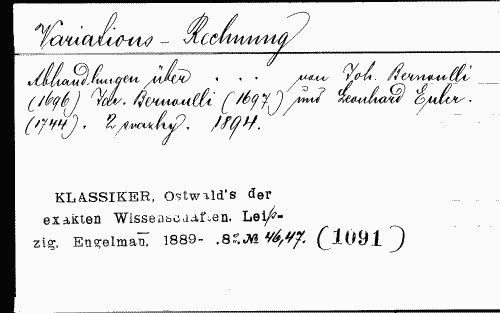 Variations-Rechnung
Abhandlungen über . . . von Joh. Bernoulli
(1696) Jac. Bernoulli (1697) und Leonhard Euler.
(1744). 2 svazky. 1894.
KLASSIKER, Ostwald's der
exakten Wissenschaften. Leip-
zig, Engelman̄, 1889- .8º. № 46,47. (1091)